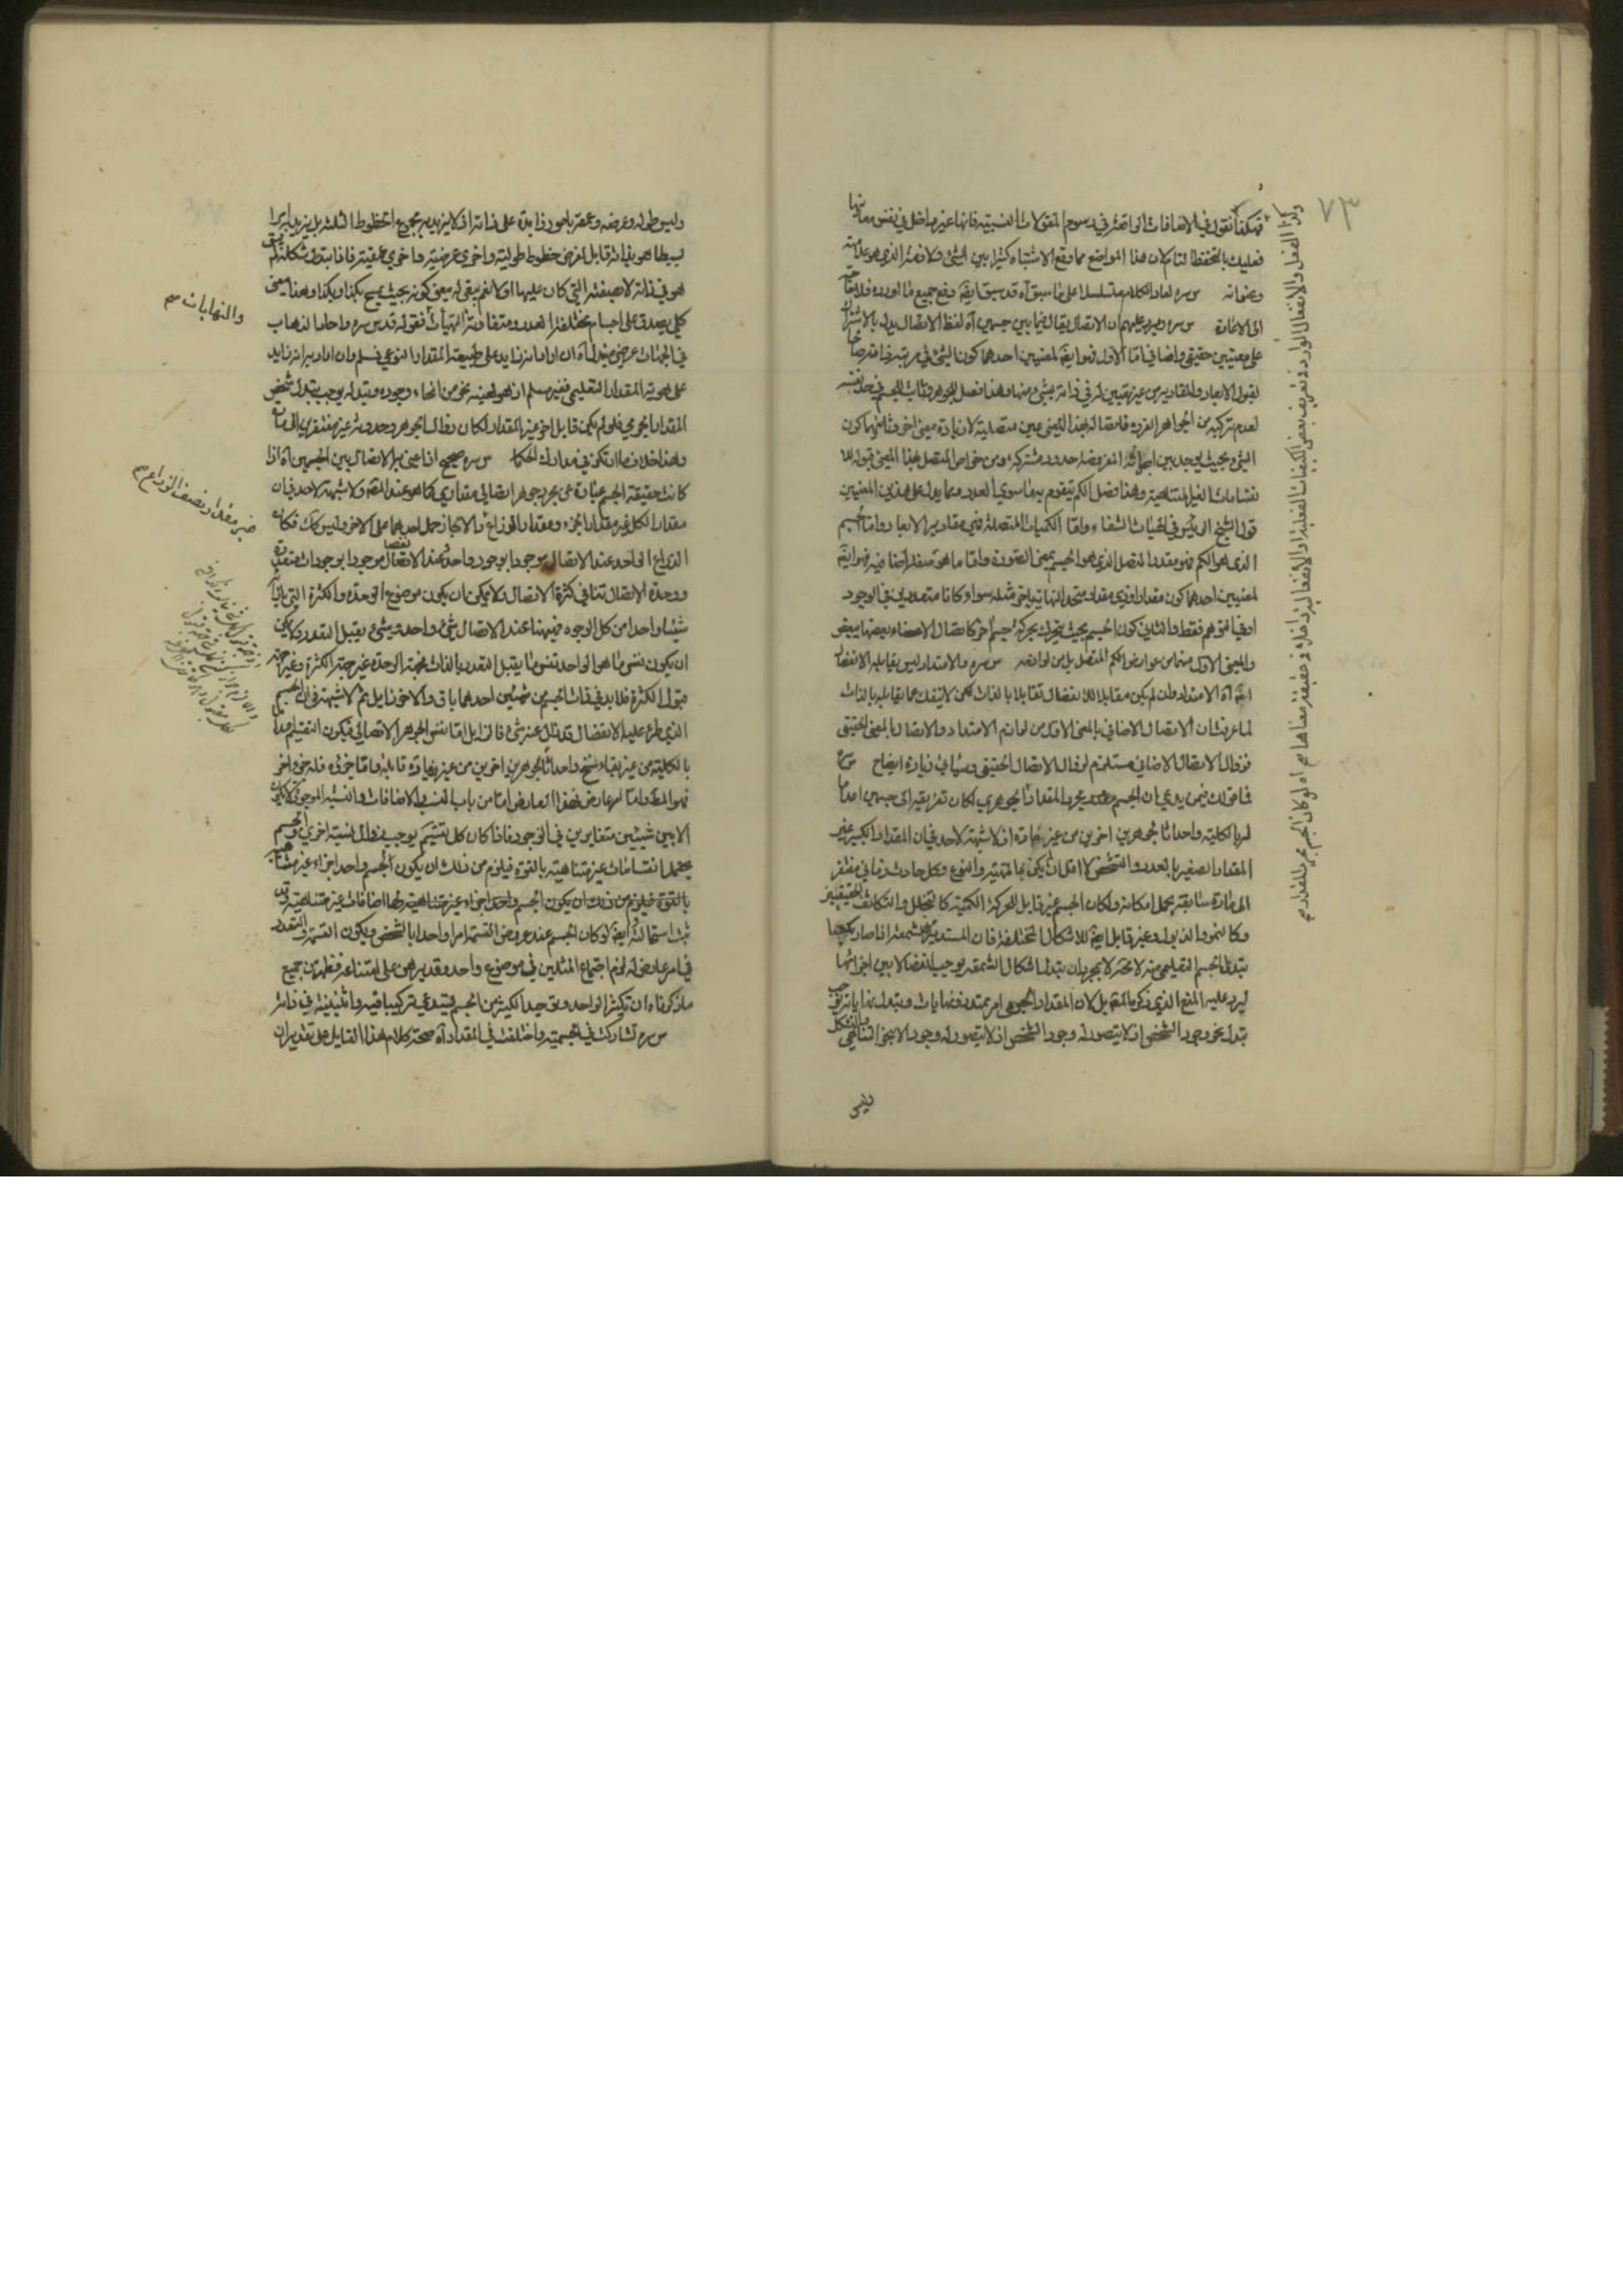 ٧٣
فهكذا نقول في الاضافات الواقعة في رسوم المقولات النسبية فانها غير داخل في نفس معانيها
فعليك بالتحفظ التام لان هذا المواضع مما وقع الاشتباه كثيرا بين الشئ ولازمه الذي هو علامته
وعنوانه س سره لعاد الكلام متسلسلا على ما سبق آه قد سبق ايضا دفع جميع ما اورده فلا
الى الاعادة س سره ويرد عليهم ان الاتصال يقال فيما بين جسمين آه لفظ الاتصال يدل بالاشتراك
على معنيين حقيقي واضافي اما الاول فهو ايضا لمعنيين احدهما كون الشئ في مرتبة
لقبول الابعاد والمقادير من غير في ذاته بشئ منها وهذا فصل للجوهر وثابت للجسم في حد نفسه
لعدم تركبه من الجواهر الفردة فاتصاله بهذا المعنى عين متصليته لا زيادة معنى اخر وثانيهما كون
الشئ بحيث يوجد بين اجزائه المفروضة حدود مشتركة ومن خواص المتصل بهذا المعنى قبوله للا
نقسامات الغير المتناهية وهذا فصل الكم يتقوم به ما سوى العدد ومما يدل على هذين المعنيين
قول الشيخ الرئيس في الهيات الشفاء واما الكميات المتصلة فهي مقادير الابعاد واما الجسم
الذي هو الكم فهو مقدر المتصل الذي هو الجسم بمعنى الصورة واما ما هو متصل اضافي فهو ايضا
لمعنيين احدهما كون مقدار او ذي مقدار متحد النهاية باخر مثله سواء كانا متعددين في الوجود
او في التوهم فقط والثاني كون الجسم بحيث يتحرك بحركة جسم آخر كاتصال الاعضاء بعضها ببعض
والمعنى الاول منهما من عوارض الكم المتصل بل من لوازمه س سره والامتداد ليس يقابله الانفصال
ايضا آه الامتداد وان لم يكن مقابلا للانفصال تقابلا بالذات لكن لا ينفك عما يقابله بالذات
لما عرفت ان الاتصال الاضافي بالمعنى الاول من لوازم الامتداد والاتصال بالمعنى الحقيقي
فزوال الاتصال الاضافي مستلزم لزوال الاتصال الحقيقي وسيأتي زيادة ايضاح س سره
فما قولك فيمن يدعي ان الجسم هو مجرد المقدار الجوهري لكان تفريقه الى جسمين اعداما
له بالكلية واحداثا لجوهرين اخرين من غير مادة اذ لا شبهة لاحد في ان المقدار الكبير غير
المقدار الصغير بالعدد والتشخص لا اقل ان يكن بالمهية والنوع وكل حادث زماني مفتقر
الى مادة سابقة يحمل امكانه ولكان الجسم غير قابل للحركة الكمية كالتخلخل والتكاثف الحقيقيين
وكالنمو والذبول وغير قابل ايضا للاشكال المختلفة فان المستدير كالشمعة اذا صار مكعبا
يتبدل الجسم التعليمي منه لا محة لا بمجرد ان يتبدل اشكال الشمعة يوجب انفصالا بين اجزائها
ليرد عليه المنع الذي ذكره بل لان المقدار الجوهري امر ممتد ذو نهايات وبتبدل نهاياته يوجب
تبدل نحو وجود الشخص اذ لا يتصور له وجود الا بنحو التناهي والتشكل
وليس
وكذا الفعل والانفعال الوارد في تعريف بعض الكيفيات الفعلية او الانفعالية داخلة في حقيقة معناها
وليس طوله وعرضه وعمقه بامور زايدة على ذاته اذ لا يزيد به مجموع الخطوط الثلثة بل يزيد به امرا
بسيطا هو بذاته قابل لفرض خطوط طولية واخرى عرضية واخرى عمقية فاذا تبدل شكله لم يبق
هو في ذاته لا صفته التي كان عليها اولا نعم يبقى له معنى كونه بحيث يمسح بكذا وبكذا وهذا معنى
كلي يصدق على اجسام مختلفة العدد ومتفاوتة الهيآت فقوله قدس سره واما الذهاب
في الجهات عرضي مبدل آه ان اراد انه زايد على طبيعة المقدار النوعي فمسلم وان اراد به انه زايد
على هوية المقدار التعليمي فغير مسلم اذ هو لهينه نحو من انحاء وجوده وتبدله يوجب تبدل شخص
المقدار الجوهري فلو لم يكن قابل اخر غير المقدار لكان زوال الجوهر وحدوثه غير مفتقر الى مادة
وهذا خلاف ما ارتكز في مدارك الحكما س سره صحيح اذا عنى به الاتصال بين الجسمين آه اذا
كانت حقيقة الجسم عبارة عن مجرد جوهر اتصالي مقداري كما هو عنده المقة ولا شبهة لاحد في ان
مقدار الكل غير مقدار الجزء ومقدار الذراع والا لجاز حمل احدهما على الاخر وليس كك فكان
الذراع الواحد عند الاتصال موجودا بوجود واحد وعند الانفصال موجودا بوجودات متعددة
ووحدة الاتصال تنافي كثرة الانفصال ولا يمكن ان يكون موضوع الوحدة والكثرة التي بازائها
شيئا واحدا من كل الوجوه فههنا عند الاتصال شئ واحد وشئ يقبل التعدد ولا يمكن
ان يكون نفس ما هو الواحد نفس ما يقبل التعدد بالذات فجهة الوحدة غير جهة الكثرة وغير جهة
قبول الكثرة فلا بد في ذات الجسم من شيئين احدهما باق والاخر زايل ثم لا شبهة في ان الجسم
الذي طرء عليه الانفصال قد زال عنه شئ فالزايل اما نفس الجوهر الاتصالي فيكون التقسيم
بالكلية من غير بقاء سنخ واحداثا لجوهرين اخرين من غير مادة قابلة واما جزؤه فله جزء اخر
فهو المط واما امر عارض فهذا العارض اما من باب النسب والاضافات والنسبة الموجودة لا تكون
الا بين شيئين متغايرين في الوجود فاذا كان كل تقسيم يوجب زوال نسبة اخرى والجسم
يحتمل انقسامات غير متناهية بالقوة فيلزم من ذلك ان يكون الجسم واحد اجزاء غير متناهية
بالقوة فيلزم من ذلك ان يكون الجسم واحد اجزاء غير متناهية ولها اضافات غير متناهية وقد
ثبت استحالته ايضا لو كان الجسم عند عروض القسمة امرا واحدا بالشخص ويكون القسمة والتعدد
في امر عارض له لزم اجتماع المثلين في موضوع واحد وقد برهن على امتناعه فظهر من جميع
ما ذكرناه ان تكثير الواحد وتوحيد الكثير من الجسم يستدعي تركيبا فيه واثنينية في ذاته
س سره تشاركت في الجسمية واختلفت في المقدار آه صحة كلام هذا القايل على تقدير ان
والنهايات
غير مقدار نصف الذراع